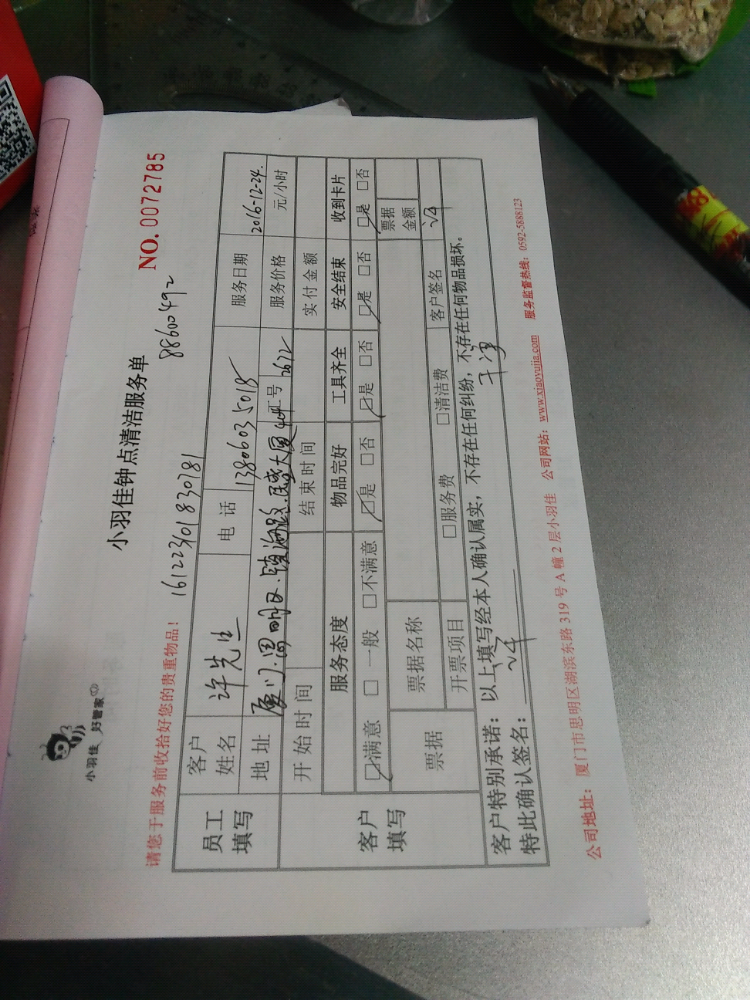 小羽佳 好管家
小羽佳钟点清洁服务单
NO. 0072785
88600492
请您于服务前收拾好您的贵重物品！
员工填写
客户姓名 许先生 电话 13806035018 服务日期 2016-12-24.
地址 厦门.思明区. 大厦 工号 2672 服务价格 元/小时
客户填写
开始时间 结束时间 实付金额
服务态度 物品完好 工具齐全 安全结束 收到卡片
☑满意 □一般 □不满意 ☑是 □否 ☑是 □否 ☑是 □否 ☑是 □否
票据 票据名称 票据金额
开票项目 □服务费 □清洁费 客户签名
客户特别承诺：以上填写经本人确认属实，不存在任何纠纷，不存在任何物品损坏。
特此确认签名： 干净
公司地址：厦门市思明区湖滨东路319号A幢2层小羽佳 公司网站：www.xiaoyujia.com 服务监督热线：0592-5888123